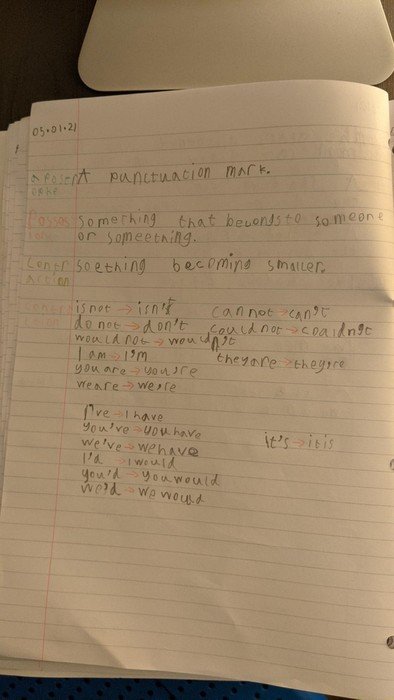 05.01.21
A punctuation mark.
Something that belongs to someone
or someething.
Contr soething becoming smaller.
action
is not → isn't can not → can't
do not → don't could not → couldn't
would not → wouldn't
I am → I'm they are → they're
you are → you're
we are → we're
I've → I have
you've → you have it's → it is
we've → we have
I'd → I would
you'd → you would
we'd → we would